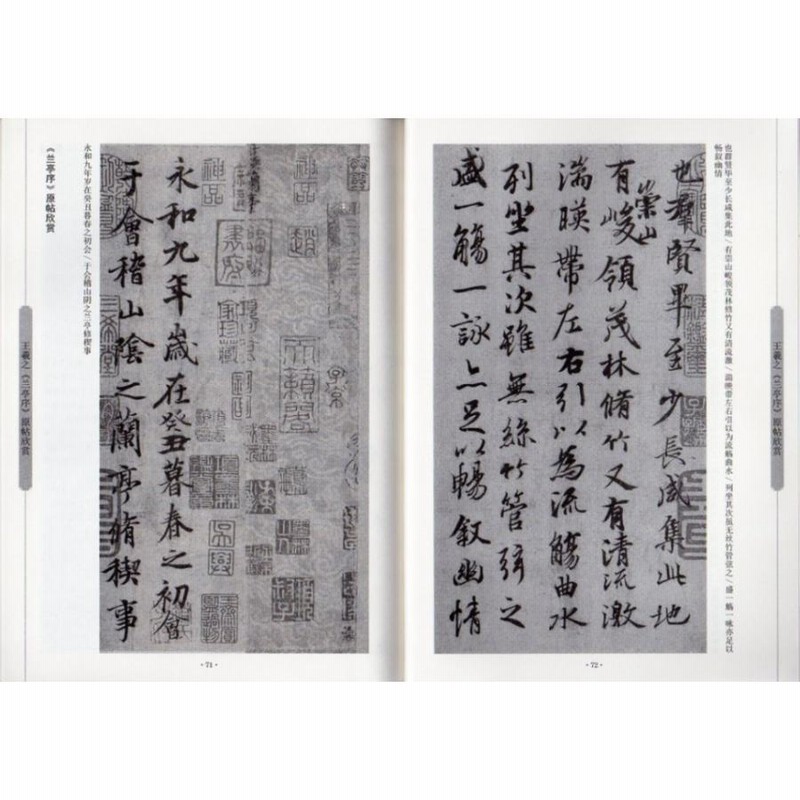 《兰亭序》原帖欣赏
永和九年岁在癸丑暮春之初会/于会稽山阴之兰亭修禊事
王羲之《兰亭序》原帖欣赏
神品
神品
趙
永和九年歲在癸丑暮春之初會
于會稽山陰之蘭亭脩禊事
·71·
也群贤毕至少长咸集此地/有崇山峻领茂林修竹又有清流激/湍映带左右引以为流觞曲水/列坐其次虽无丝竹管弦之/盛一觞一咏亦足以
畅叙幽情
王羲之《兰亭序》原帖欣赏
也群賢畢至少長咸集此地
有崇山峻領茂林脩竹又有清流激
湍暎帶左右引以為流觴曲水
列坐其次雖無絲竹管弦之
盛一觴一詠亦足以暢叙幽情
·72·